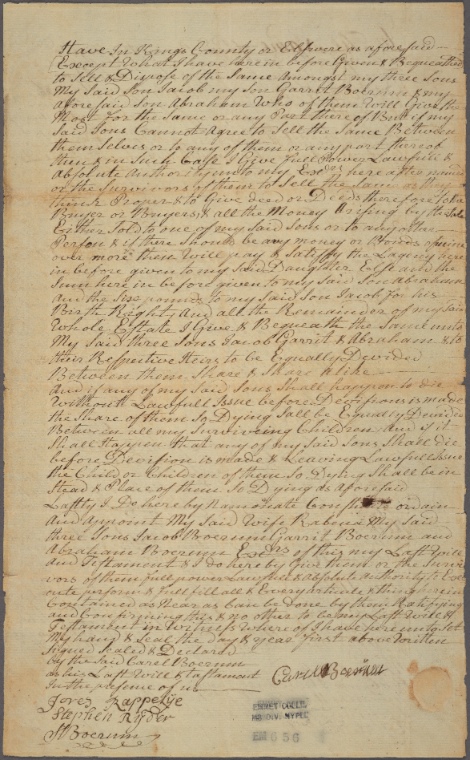 Have In Kings County or Elswere as afore said
Except What I have here in before Given & Bequeathed
to Sell & Dispose of the Same Amongst my three Sons
My Said Son Jacob my Son Garrit Boerum & my
afore said Son Abraham Who of them Will Give the
Most for the Same or any Part there of But if my
Said Sons Cannot Agree to Sell the Same Between
them Selves or to any of them or any part thereof
then & in Such Case I Give full Power Lawfull &
Absolute Authority unto my Exrs here after named
or the Survivors of them to Sell the Same as they
think Proper & to Give deed or Deeds therefore to the
Buyer or Buyers & all the Money Arising by the Sale
Either Sold to one of my Said Sons or to any other
Person & if there Should be any money or Bonds
over more then Will pay & Satisfy the Legacy here
in before given to my Said Daughter Elsie and the
Sum here in before given to my Said Son Abraham
And the Six pounds to my Said Son Jacob for his
Birth Right And all the Remainder of my Said
Whole Estate I Give & Bequeath the Same unto
My Said three Sons Jacob Garrit & Abraham & to
their Respective Heirs to be Equally Devided
Between them Share & Share alike
And if any of my Said Sons Shall happen to die
Without Lawfull Issue before Devisions is made
the Share of them So Dying Sall be Equally Devided
Between all my Surviveing Children And if it
Shall Happen that any of my Said Sons Shall die
before Devision is made & Leaving Lawfull Issue
the Child or Children of them So Dying Shall be in
Stead & Place of them So Dying as Aforesaid
Lastly I Do hereby Namonate Constitute ordain
And Appoint My Said Wife My Said
three Sons Jacob Boerum Garrit Boerum and
Abraham Boerum Exrs of this my Last Will
and Testament & I do hereby Give them or the Survi
vors of them full power Lawfull & absolute Authority to Exe
cute perform & fullfill all & Every Article & thing herein
Contained as Near as Can be Done by them Ratifying
and Confirming this & no other to be my Last Will &
Testament in Witness Where of I have hereunto Set
My hand & Seal the Day & year first above Written
Signed Sealed & Declared
by the Said Carel Boerum
as his Last Will & Testament
In the presence of us
Carel Boerum
Joris Rappelye
Stephen Ryder
Boerum
EMMET COLL.
MS. DIV. NYPL
EM 636